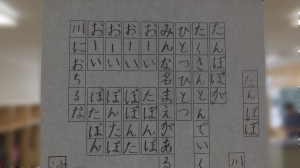 たんぽぽ
川
たんぽぽが
たくさんとんでいく
ひとつひとつ
みんな名まえがある
おーい たぽんぽ
おーい ぽぽんた
おーい ぽんたぽ
おーい ぽたぽん
川におちるな